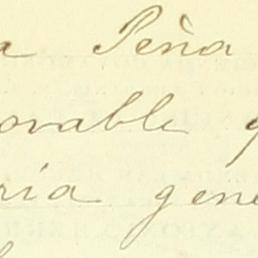 a Peña
orable q
ria gene